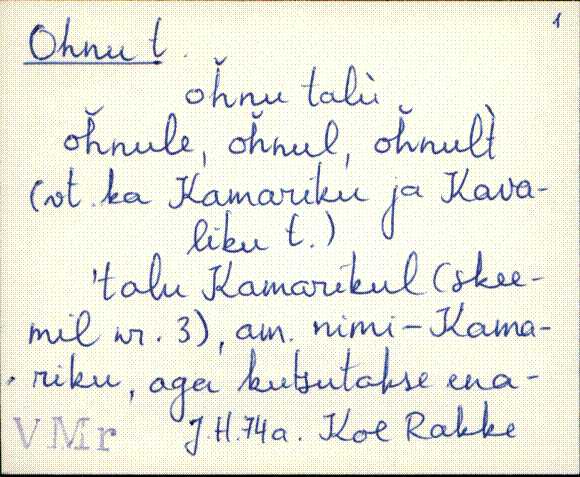 1
Ohnu t.
oh̆nu talù
oh̆nule, oh̆nul, oh̆nult̀
(vt. ka Kamariku ja Kava-
liku t.)
'talu Kamarikul (skee-
mil nr. 3), am. nimi - Kama-
riku, aga kutsutakse ena-
VMr J.H. 74a. Koe Rakke